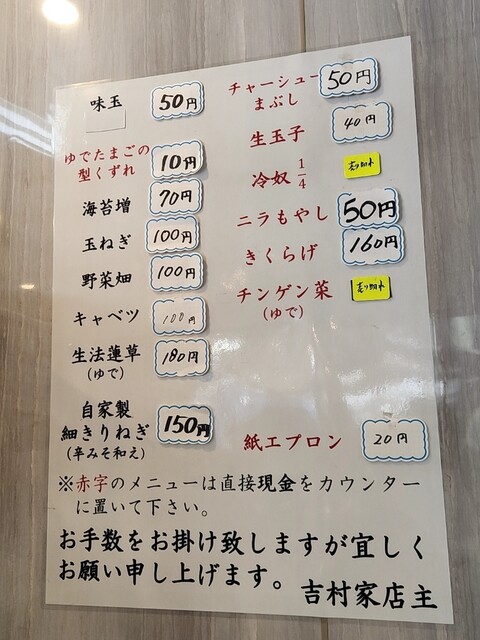 味玉 50円
ゆでたまごの
型くずれ 10円
海苔増 70円
玉ねぎ 100円
野菜畑 100円
キャベツ 100円
生法蓮草
(ゆで) 180円
自家製
細きりねぎ 150円
(辛みそ和え)
チャーシュー
まぶし 50円
生玉子 40円
冷奴 1/4
ニラもやし 50円
きくらげ 160円
チンゲン菜
(ゆで)
紙エプロン 20円
※赤字のメニューは直接現金をカウンター
に置いて下さい。
お手数をお掛け致しますが宜しく
お願い申し上げます。
吉村家店主